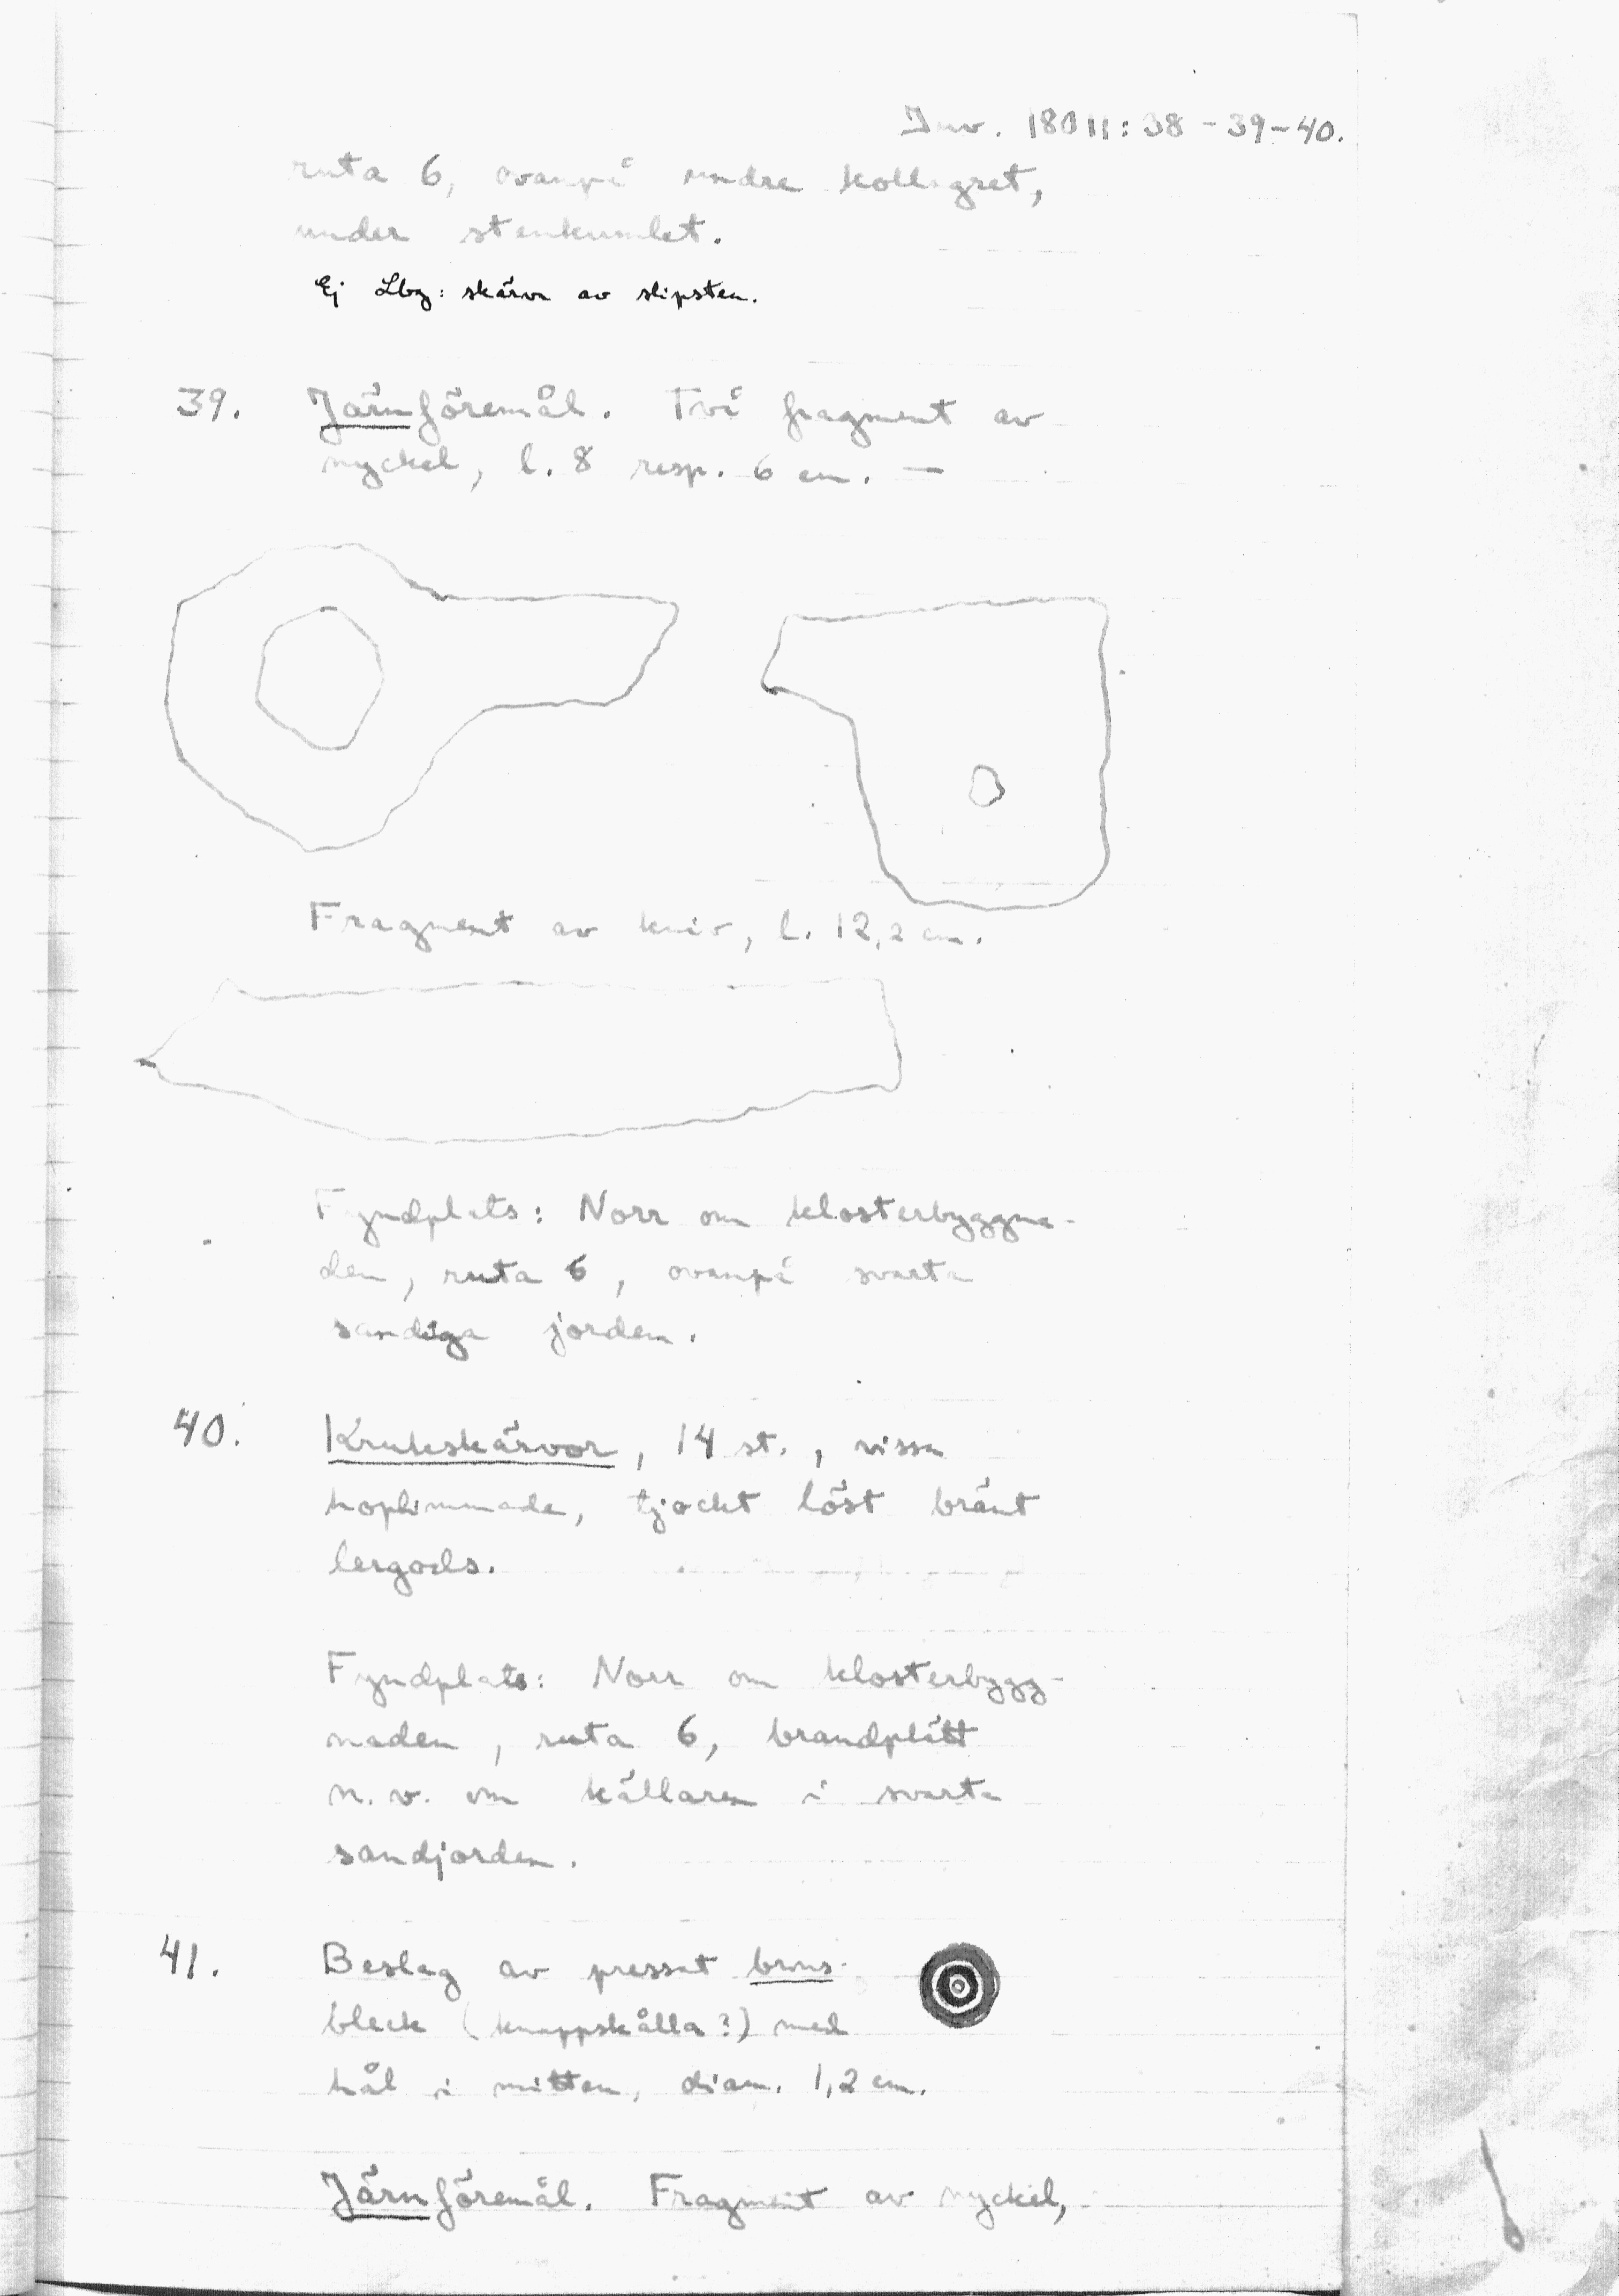 Inv. 18011:38-39-40.
ruta 6, ovanpå undre kollagret,
under stenkumlet.
Ej Lbg: skärva av slipsten.
39. Järnföremål. Två fragment av
nyckel, l. 8 resp. 6 cm. —
Fragment av kniv, l. 12,2 cm.
Fyndplats: Norr om klosterbyggna-
den, ruta 6, ovanpå svarta
sandiga jorden.
40. Krukskärvor, 14 st., vissa
hoplimmade, tjockt löst bränt
lergods.
Fyndplats: Norr om klosterbygg-
naden, ruta 6, brandplätt
n.v. om källaren i svarta
sandjorden.
41. Beslag av pressat brons-
bleck (knappskålla?) med
hål i mitten, diam. 1,2 cm.
Järnföremål. Fragment av nyckel,